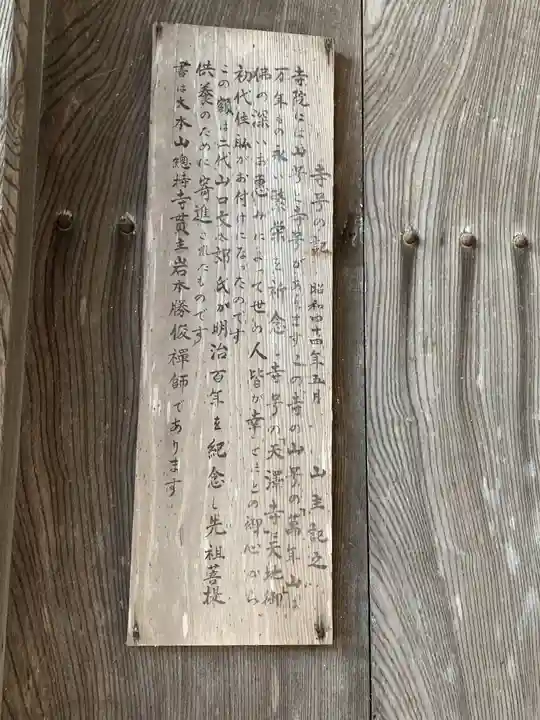 寺号の記 昭和四十四年五月 山主記之
寺院には山号と寺号があります この寺の山号の「萬年山」は
万年もの永い繁栄を祈念し寺号の「天澤寺」は天地御
佛の深いお恵みによって世の人皆が幸でとの御心から
初代住職がお付けになったのです
この額は二代山口文太郎氏が明治百年を紀念し先祖菩提
供養のために寄進されたものです
書は大本山總持寺貫主岩本勝俊禅師であります